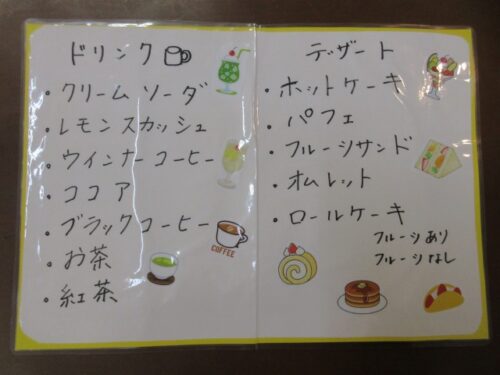 ドリンク
・クリームソーダ
・レモンスカッシュ
・ウインナーコーヒー
・ココア
・ブラックコーヒー
COFFEE
・お茶
・紅茶
デザート
・ホットケーキ
・パフェ
・フルーツサンド
・オムレット
・ロールケーキ
フルーツあり
フルーツなし